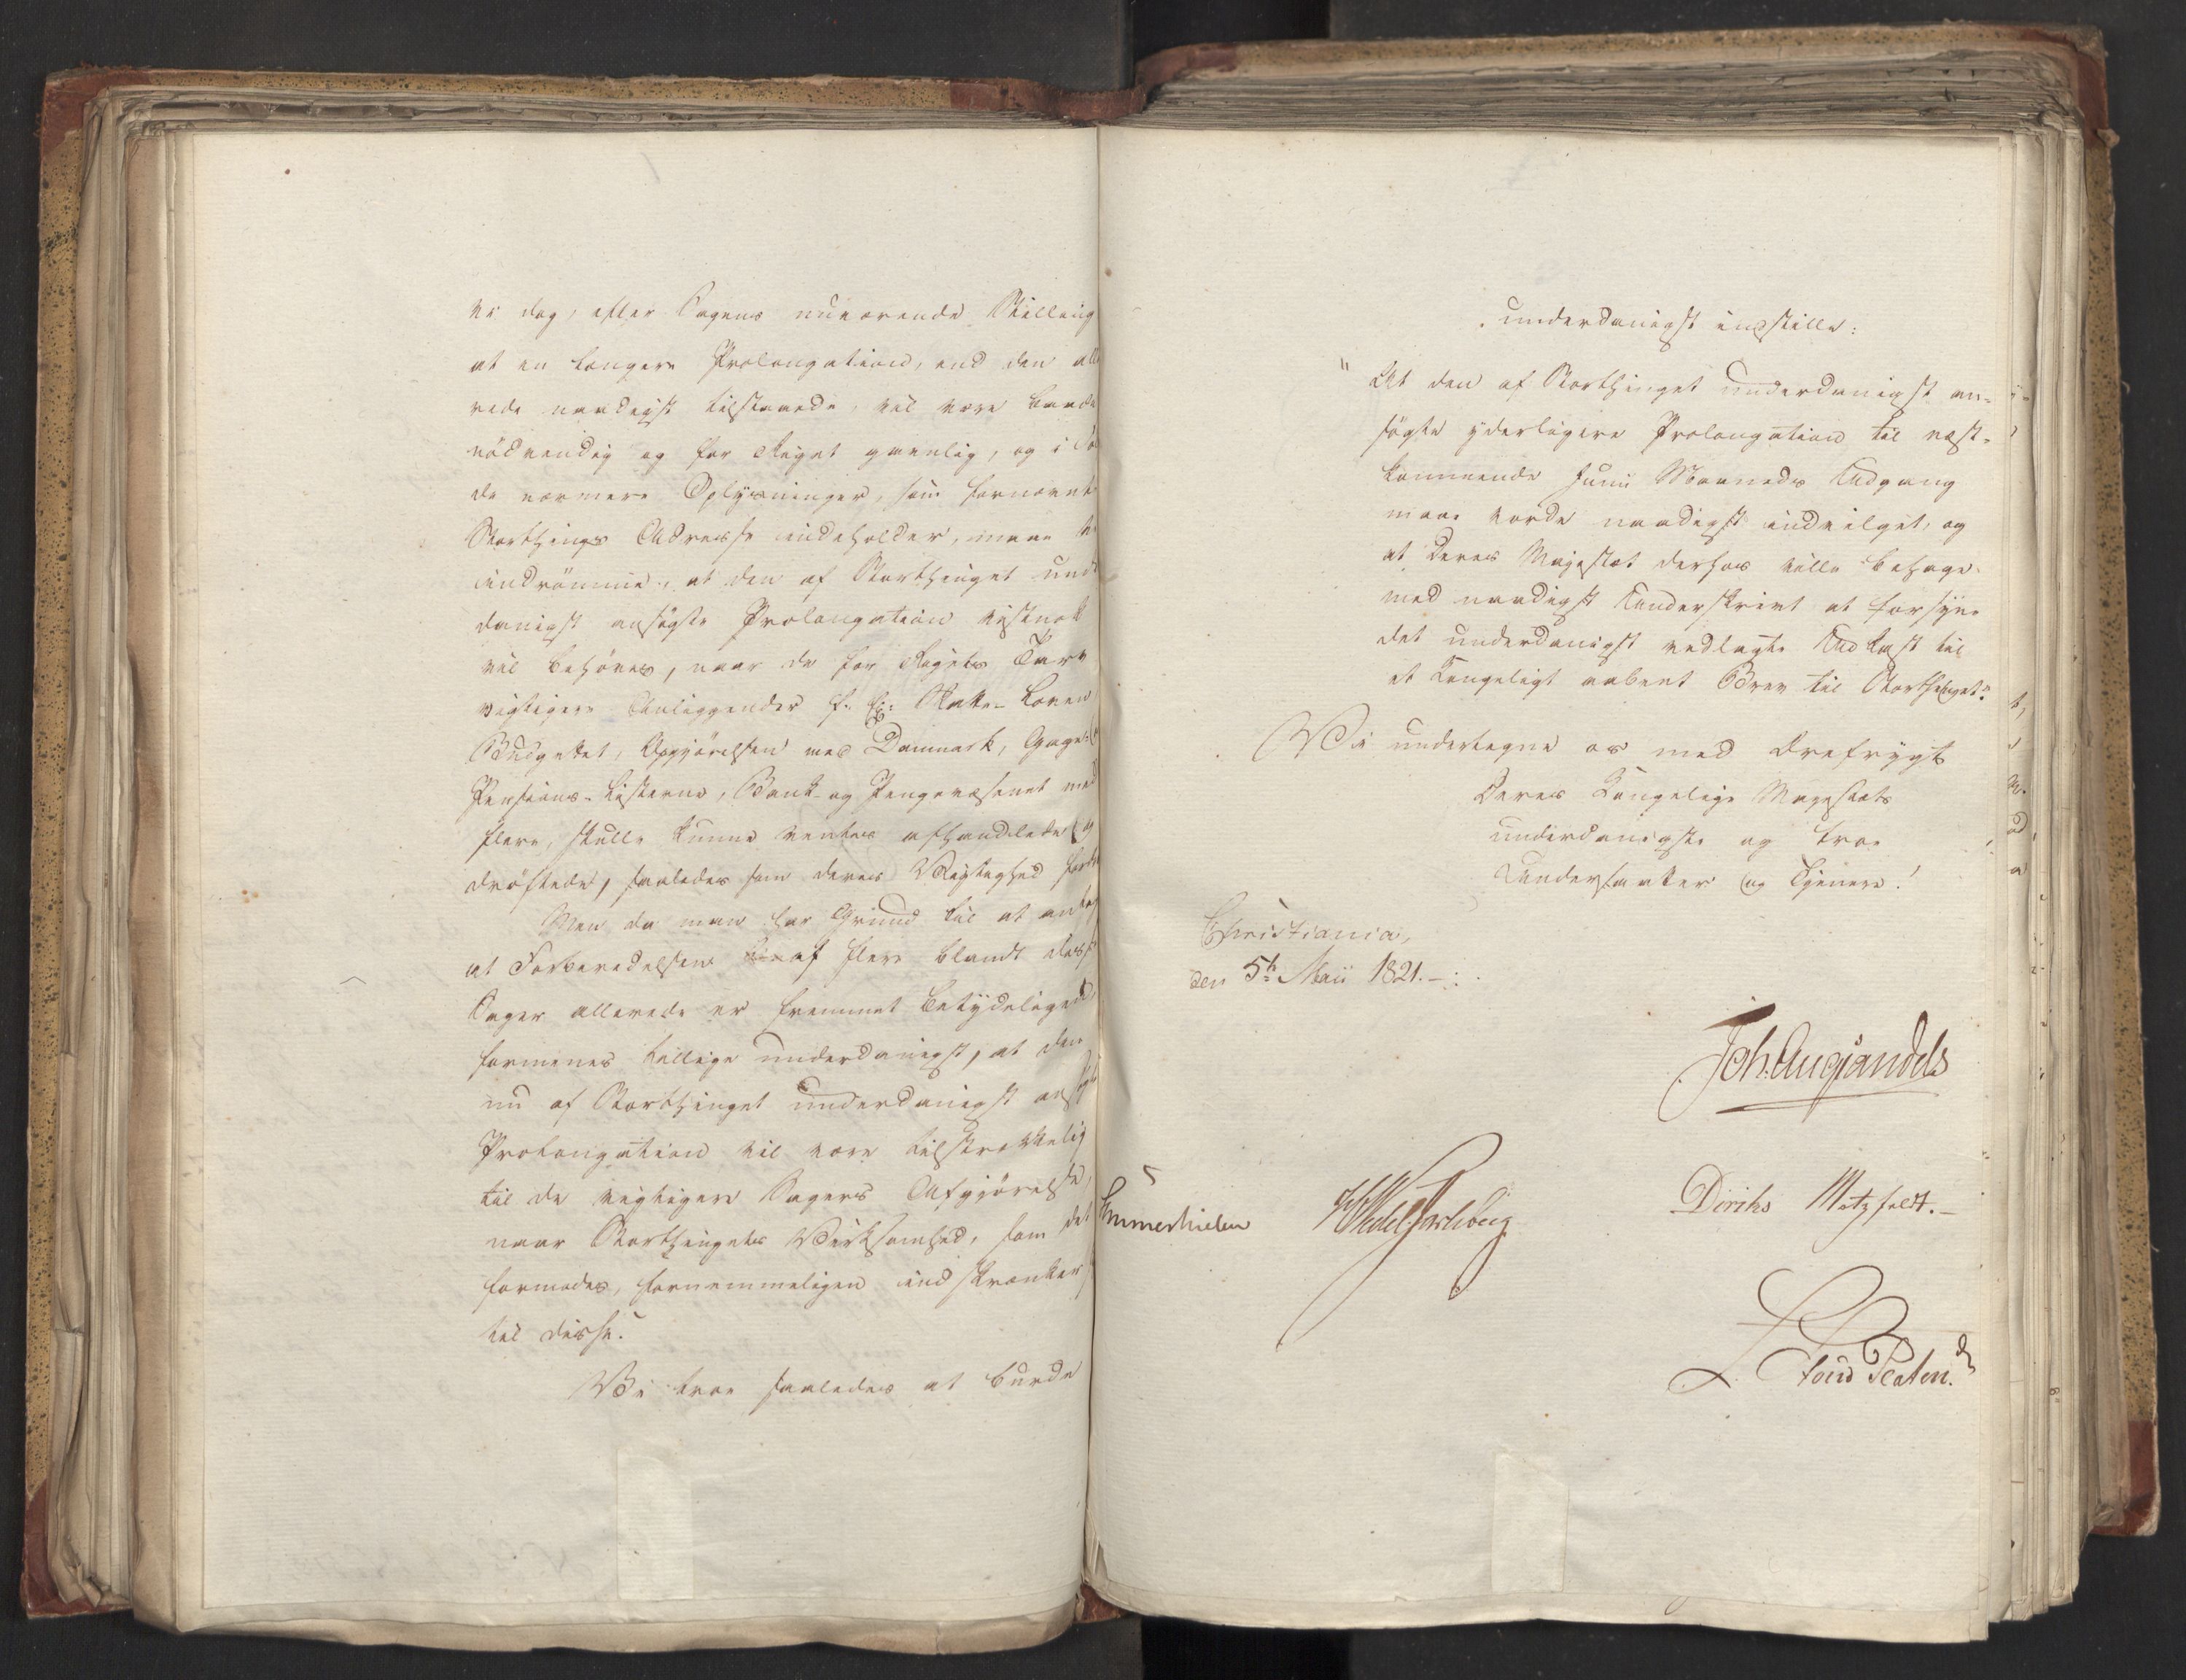 vi dog, efter Sagens nuværende Stilling
at en længere Prolongation, end den alle
rede naadigst tilstaaede, vil være baade
nödvendig og for Riget gavnlig, og i
de nærmere Oplysninger, som fornævnte
Storthings Adresse indeholder, maae vi
indrömme, at den af Storthinget und
danigst ansögte Prolongation vistnok
vil behöves, naar de for Rigets Tarv
vigtigere Anliggender f. Ex: Skatte-Loven
Budgettet, Opgjörelsen med Danmark, Gage-
Pensions-Listerne, Bank- og Pengevæsenet med
flere, skulle kunne ventes afhandlede og
dröftede, saaledes som deres Vigtighed
Men da man har Grund til at antag
at Forberedelsen af flere blandt disse
Sager allerede er fremmet betydeligen
formenes tillige underdanigst, at den
nu af Storthinget underdanigst ansögte
Prolongation vil være tilstrækkelig
til de vigtigere Sagers Afgjörelse,
naar Storthingets Virksomhed, som det
formodes, fornemmeligen indskrænker
til disse.
Vi troe saaledes at burde
underdanigst indstille:
"At den af Storthinget underdanigst an-
sögte yderligere Prolongation til næst-
kommende Junii Maaneds Udgang
maae vorde naadigst indvilget, og
at Deres Majestæt derhos ville behage
med naadigst Underskrivt at forsyne
det underdanigst vedlagte Udkast til
et Kongeligt aabent Brev til Storthinget."
Vi undertegne os med Ærefrygt
Deres Kongelige Majestæts
underdanigste og troe
Undersaatter og Tjenere!
Christiania,
den 5te Maii 1821.
Joh. Aug. Sandels
Sommerhielm HWedel Jarlsberg Diriks Motzfeldt.